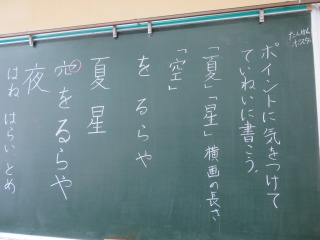 ポイントに気をつけて
ていねいに書こう。
「夏」「星」横画の長さ
「空」
をるらや
夏星
空をるらや
夜
はねはらいとめ